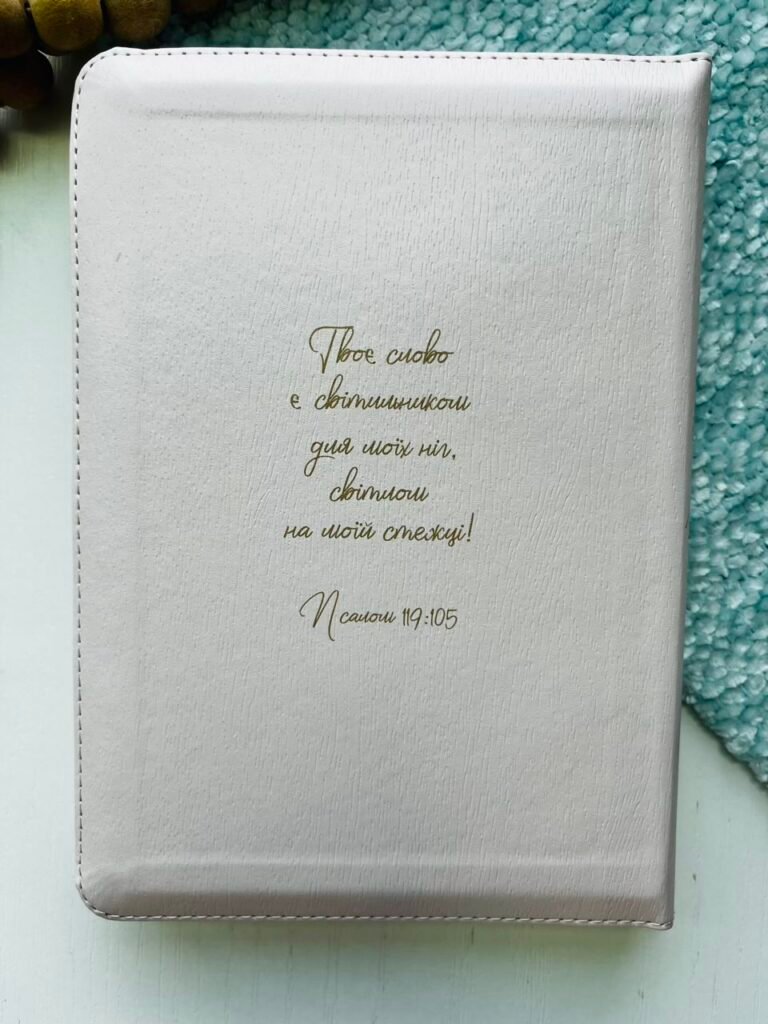 Твоє слово
є світильником
для моїх ніг,
світлом
на моїй стежці!
Псалом 119:105